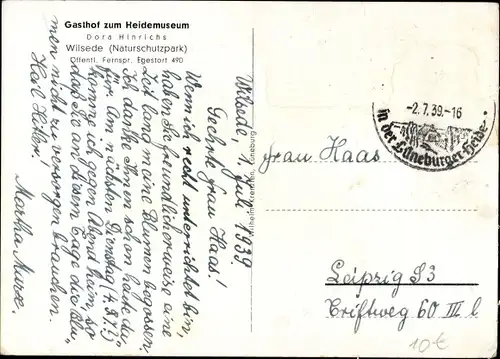 Gasthof zum Heidemuseum
Dora Hinrichs
Wilsede (Naturschutzpark)
Öffentl. Fernspr. Egestorf 490
Wilsede, Juli 1939.
Geehrte Frau Haas!
Wenn ich recht unterrichtet bin,
haben Sie grundlicherweise eine
Zeit lang meine Blumen begossen.
Ich danke Ihnen schon heute da-
für. Am nächsten Dienstag (4.8.7.?)
komme ich gegen Abend heim, so
daß Sie an diesem Tage die Blu-
men nicht zu versorgen brauchen.
Heil Hitler!
Martha Marx.
-2.7.39.-16
in der Lüneburger Heide
Frau Haas
Leipzig S3
Triftweg 60 III l
10€